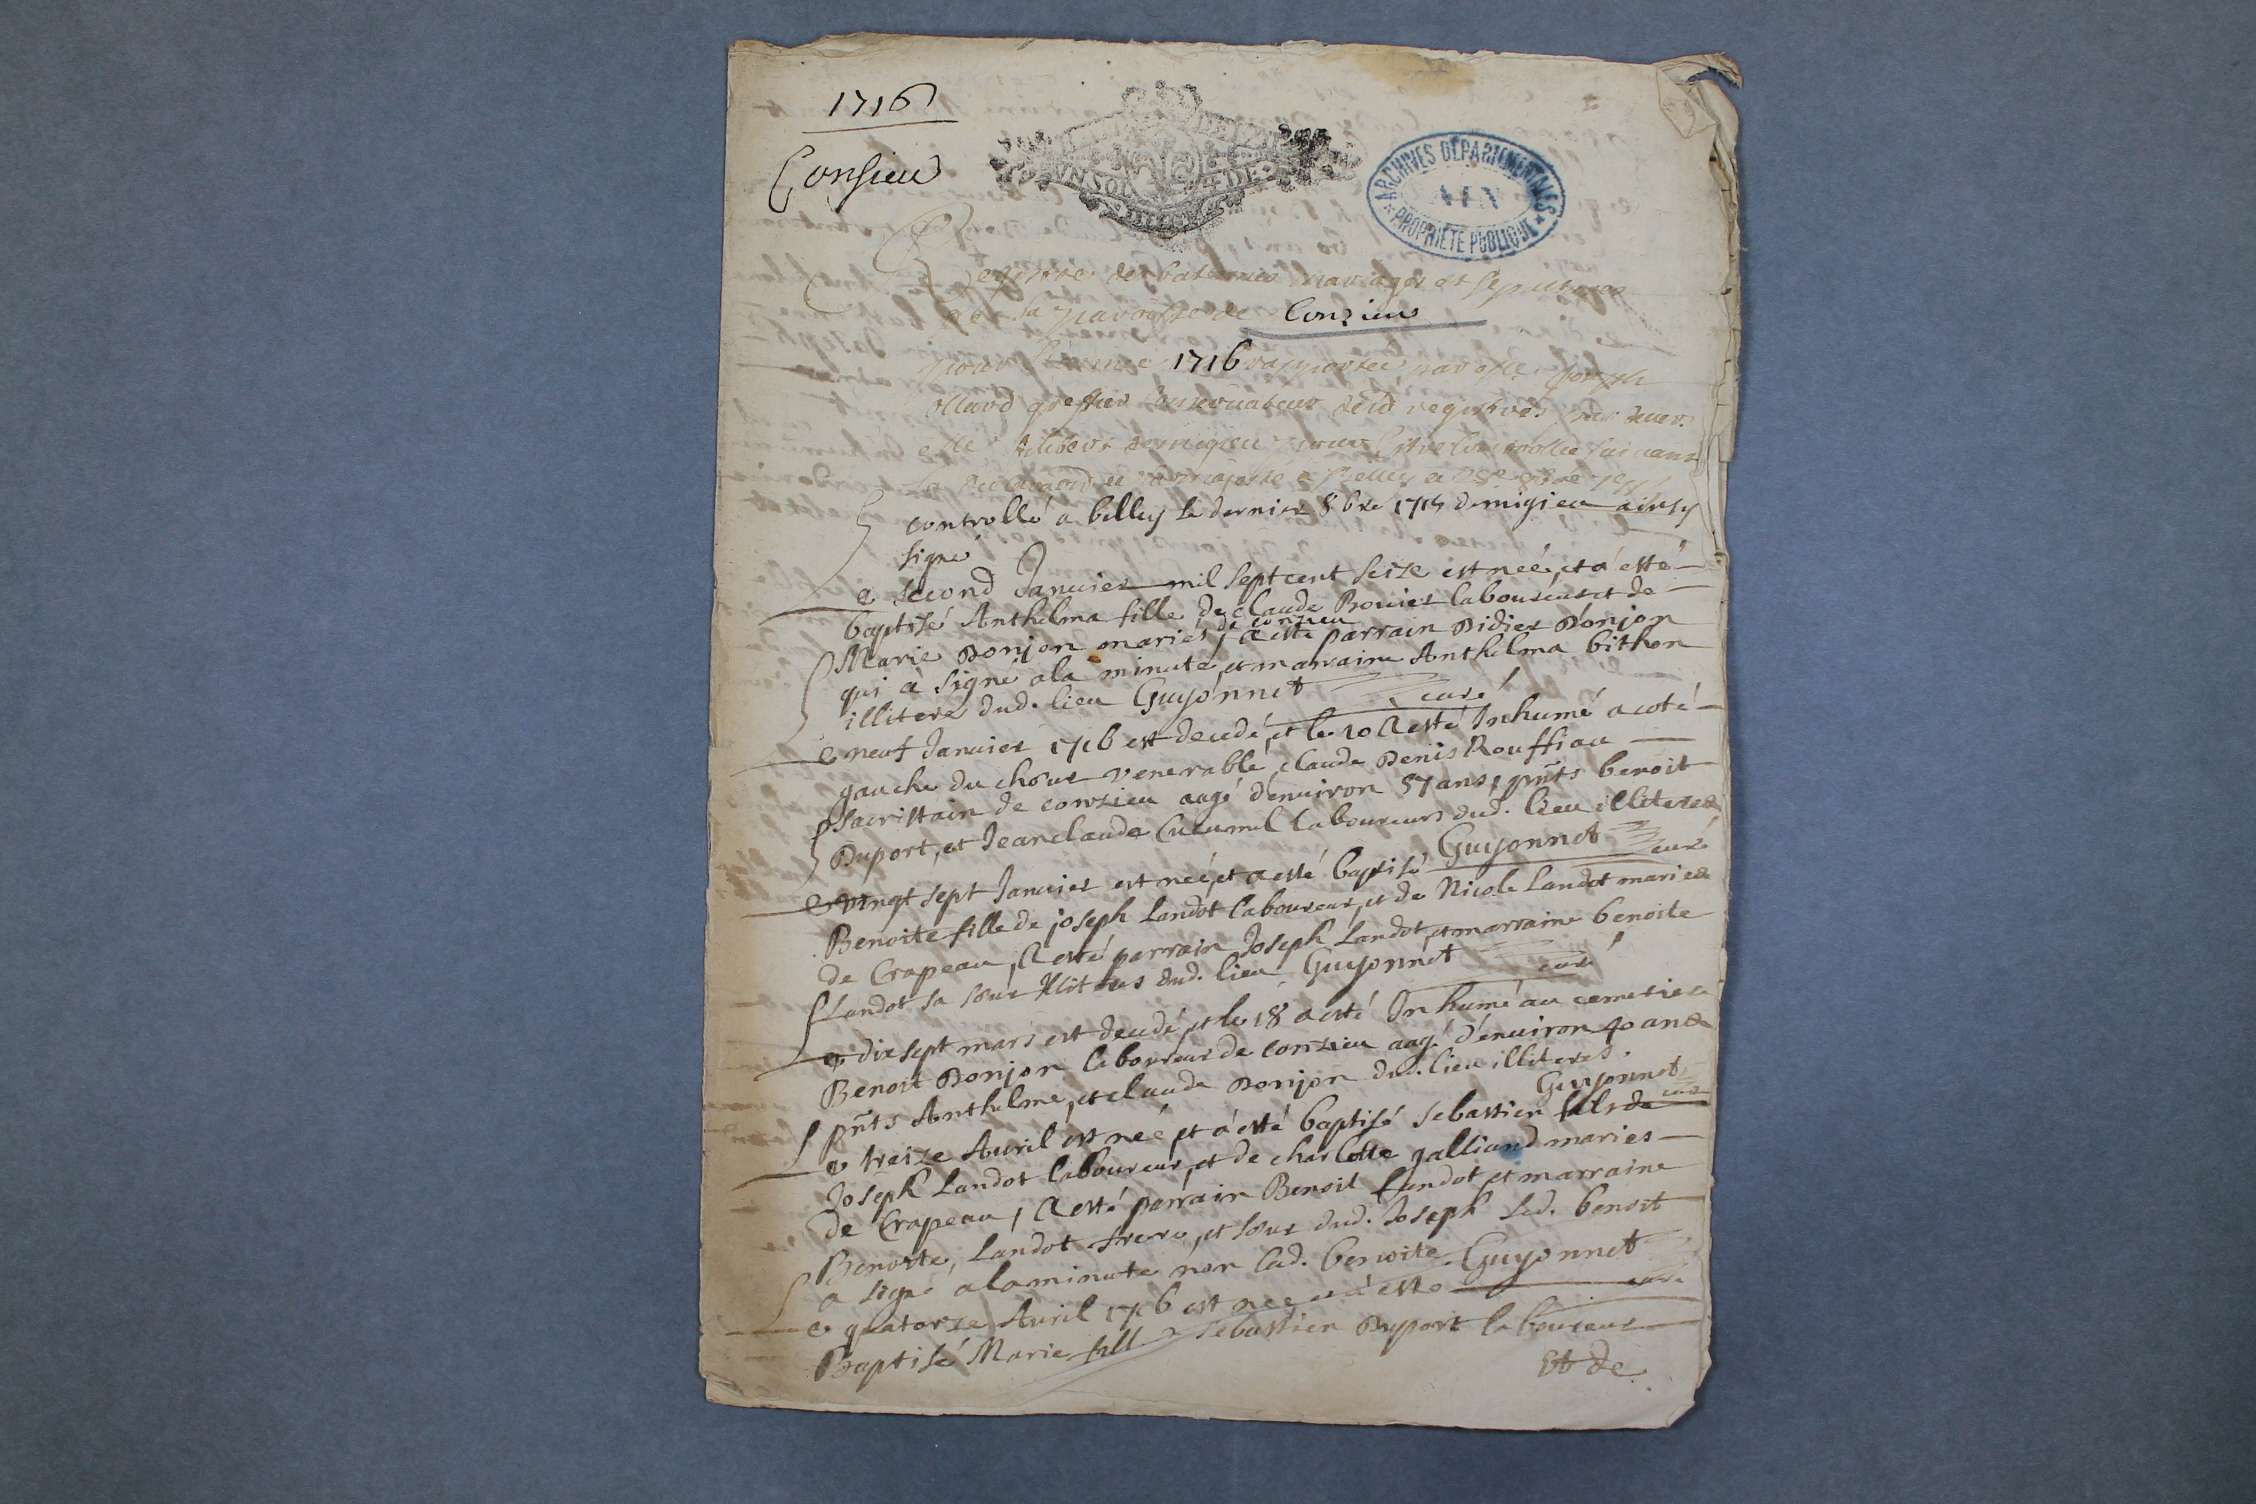 1716
Consieu
UN SOL 4 DE
ARCHIVES DEPARTEMENTALES
AIN
PROPRIETE PUBLIQUE
Registre des batesmes mariages et sepultures
de la parroisse de Conzieu
pour l'année 1716 rapportee par Joseph
ollard greffier conservateur desd registres
controllé a belley le dernier 8bre 1715 demigieu ainsy
signé
Le second Januier mil sept cent seize est neé, et a esté
baptisé Anthelma fille de claude Bouier laboureur et de
Marie Donjon mariés de conzieu, a esté parrain Didier Donjon
qui a signé a la minute, et marraine Anthelma bithon
illitere dud. lieu Guyonnet curé
Le neuf Januier 1716 est decedé, et le 10 a esté Inhumé a coté
gauche du chœur venerable claude Denis Rouffiau
sacristain de conzieu aagé d'enuiron 57 ans, pnts benoit
Duport, et Jeanclaude Cucumel laboureurs dud. lieu illiteres
Guyonnet curé
Le vingt sept Januier est neé, et a esté baptisé
Benoite fille de joseph Landot laboureur, et de Nicole Landot maries
de Crapeau, a esté parrain Joseph Landot, et marraine benoite
Landot sa sœur illiteres dud. lieu Guyonnet curé
Le dix sept mars est decedé, et le 18 a esté Inhumé au cemetiere
Benoit Donjon laboureur de conzieu aagé d'enuiron 40 ans
pnts Anthelme, et claude Donjon dud. lieu illiteres.
Guyonnet curé
Le treize Auril est neé et a esté baptisé sebastien fils de
Joseph Landot laboureur, et de charlotte galliand maries
de Crapeau, a esté parrain Benoit Landot et marraine
Benoite Landot frere, et sœur dud. Joseph led. benoit
a signé a la minute non lad. benoite Guyonnet
curé
Le quatorze Auril 1716 est neé et a esté
Baptisé Marie fille de sebastien Duport laboureur
Et de